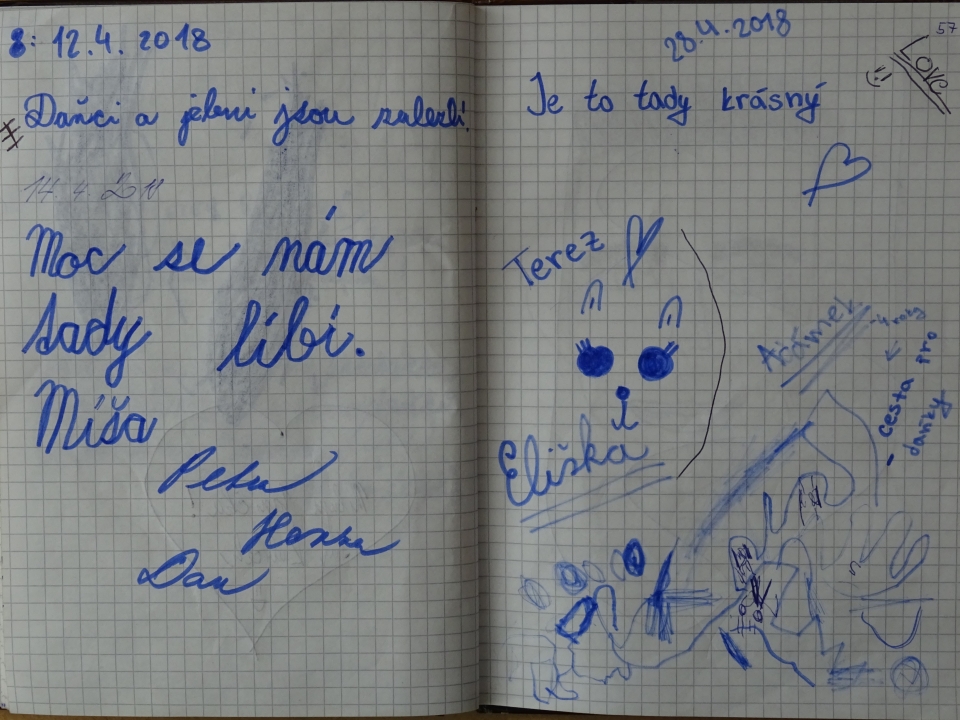 12.4. 2018
Daňci a jeleni jsou zalezlí.
14. 4. 2018
Moc se nám
tady líbí.
Míša
Petra
Hanka
Dan
57
28.4.2018
LOVC
Je to tady krásný
Terez
Eliška
cesta pro
daňky